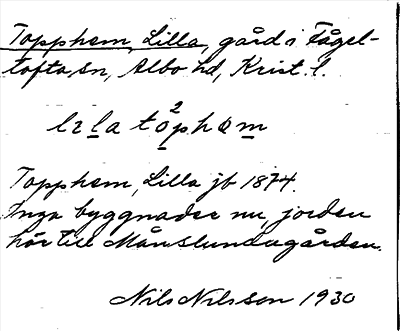 Topphem, Lilla, gård i Fågel-
tofta sn, Albo hd, Krist. l.
Topphem, Lilla jb 1874.
Inga byggnader nu, jorden
hör till Månslundagården.
Nils Nilsson 1930